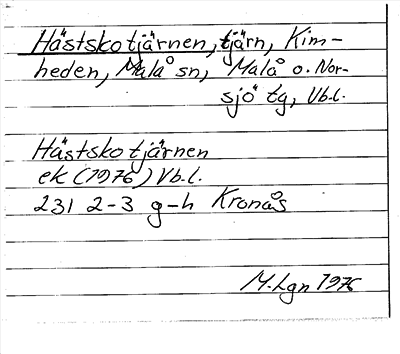 Hästskotjärnen, tjärn, Kim-
heden, Malå sn, Malå o. Nor-
sjö tg, Vb.l.
Hästskotjärnen
ek (1976) Vb.l.
231 2-3 g-h Kronås
M. Lgn 1976